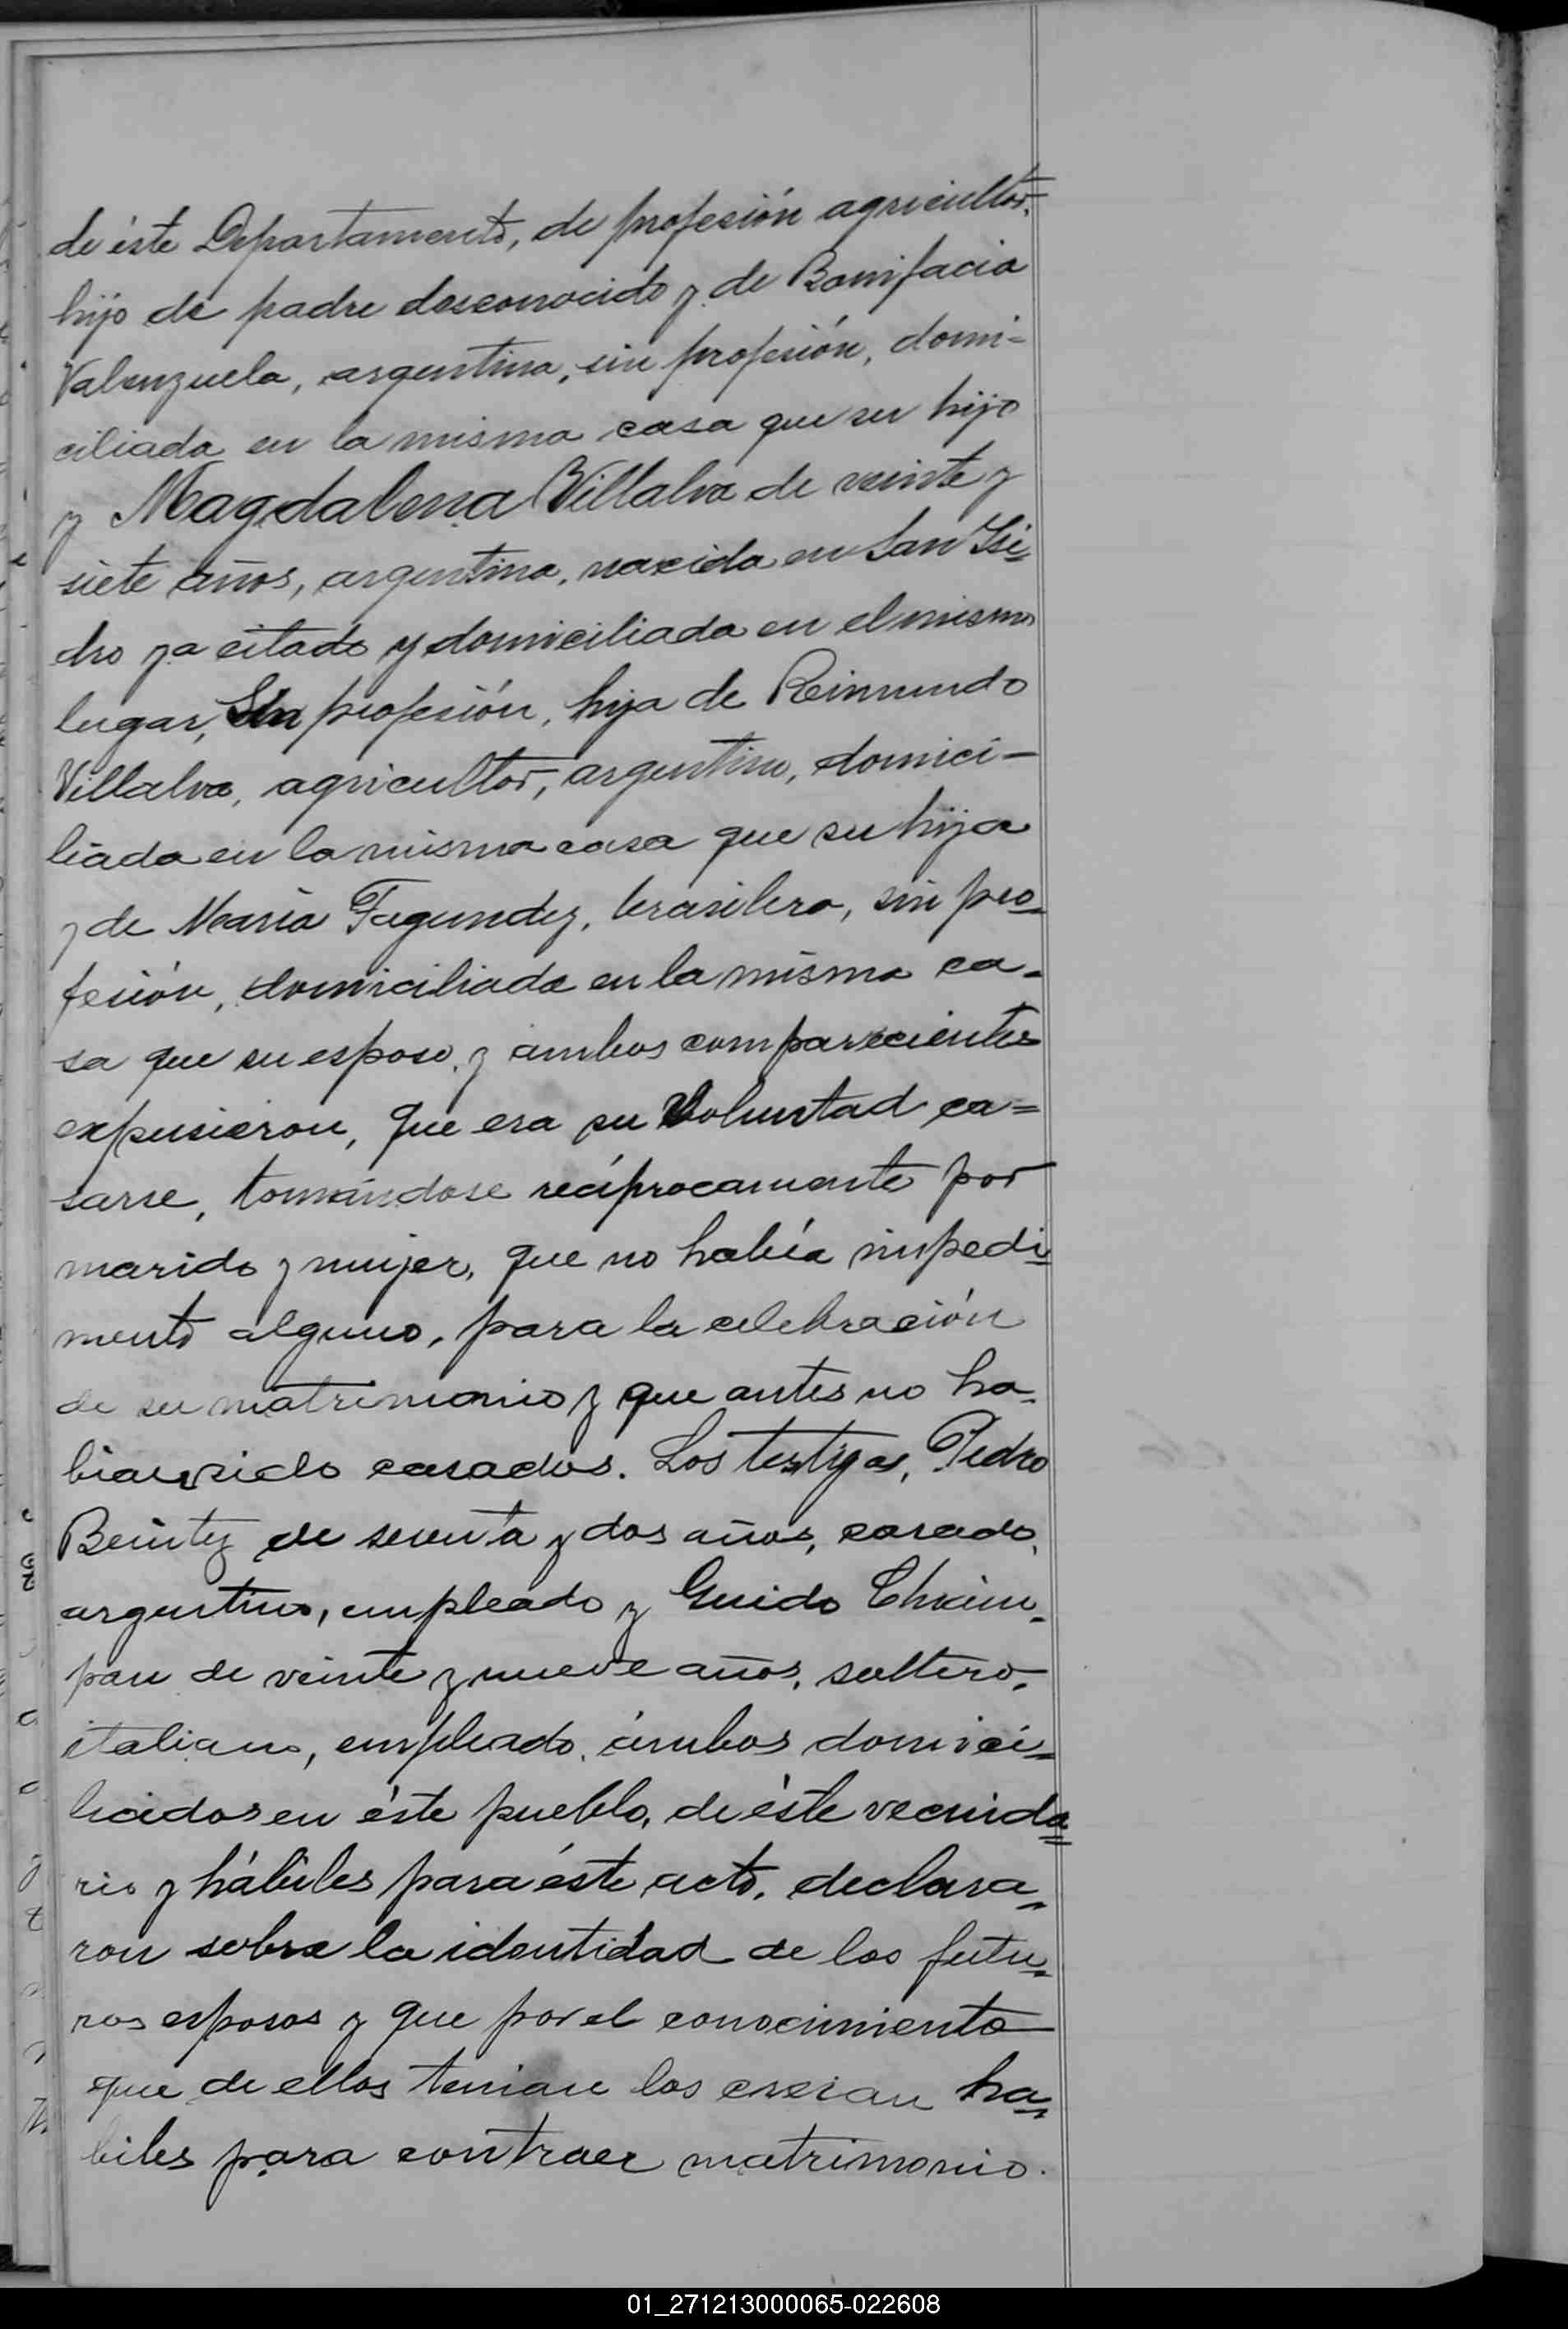 de éste Departamento, de profesión agricultor,
hijo de padre desconocido y de Bonifacia
Valenzuela, argentina, sin profesión, domi-
ciliada en la misma casa que su hijo
y Magdalena Villalva de veinte y
siete años, argentina, nacida en San Isi=
dro ya citado y domiciliada en el mismo
lugar, sin profesión, hija de Reimundo
Villalva, agricultor, argentino, domici-
liado en la misma casa que su hija
y de María Fagundez, brasilera, sin pro=
fesión, domiciliada en la misma ca-
sa que su esposo, y ámbos comparecientes
expusieron, que era su voluntad ca=
sarse, tomándose recíprocamente por
marido y mujer, que no había impedi=
mento alguno, para la celebración
de su matrimonio y que antes no ha-
bian sido casados. Los testigos, Pedro
Beintez de y dos años, casado,
argentino, empleado y Guido
pan de veinte y nueve años, soltero,
italiano, empleado, ámbos domici=
liados en éste pueblo, de éste vecinda=
rio y hábiles para éste acto, declara=
ron sobre la identidad de los futu=
ros esposos y que por el conocimiento
que de ellos tenian los creian ha=
biles para contraer matrimonio.
01_271213000065-022608